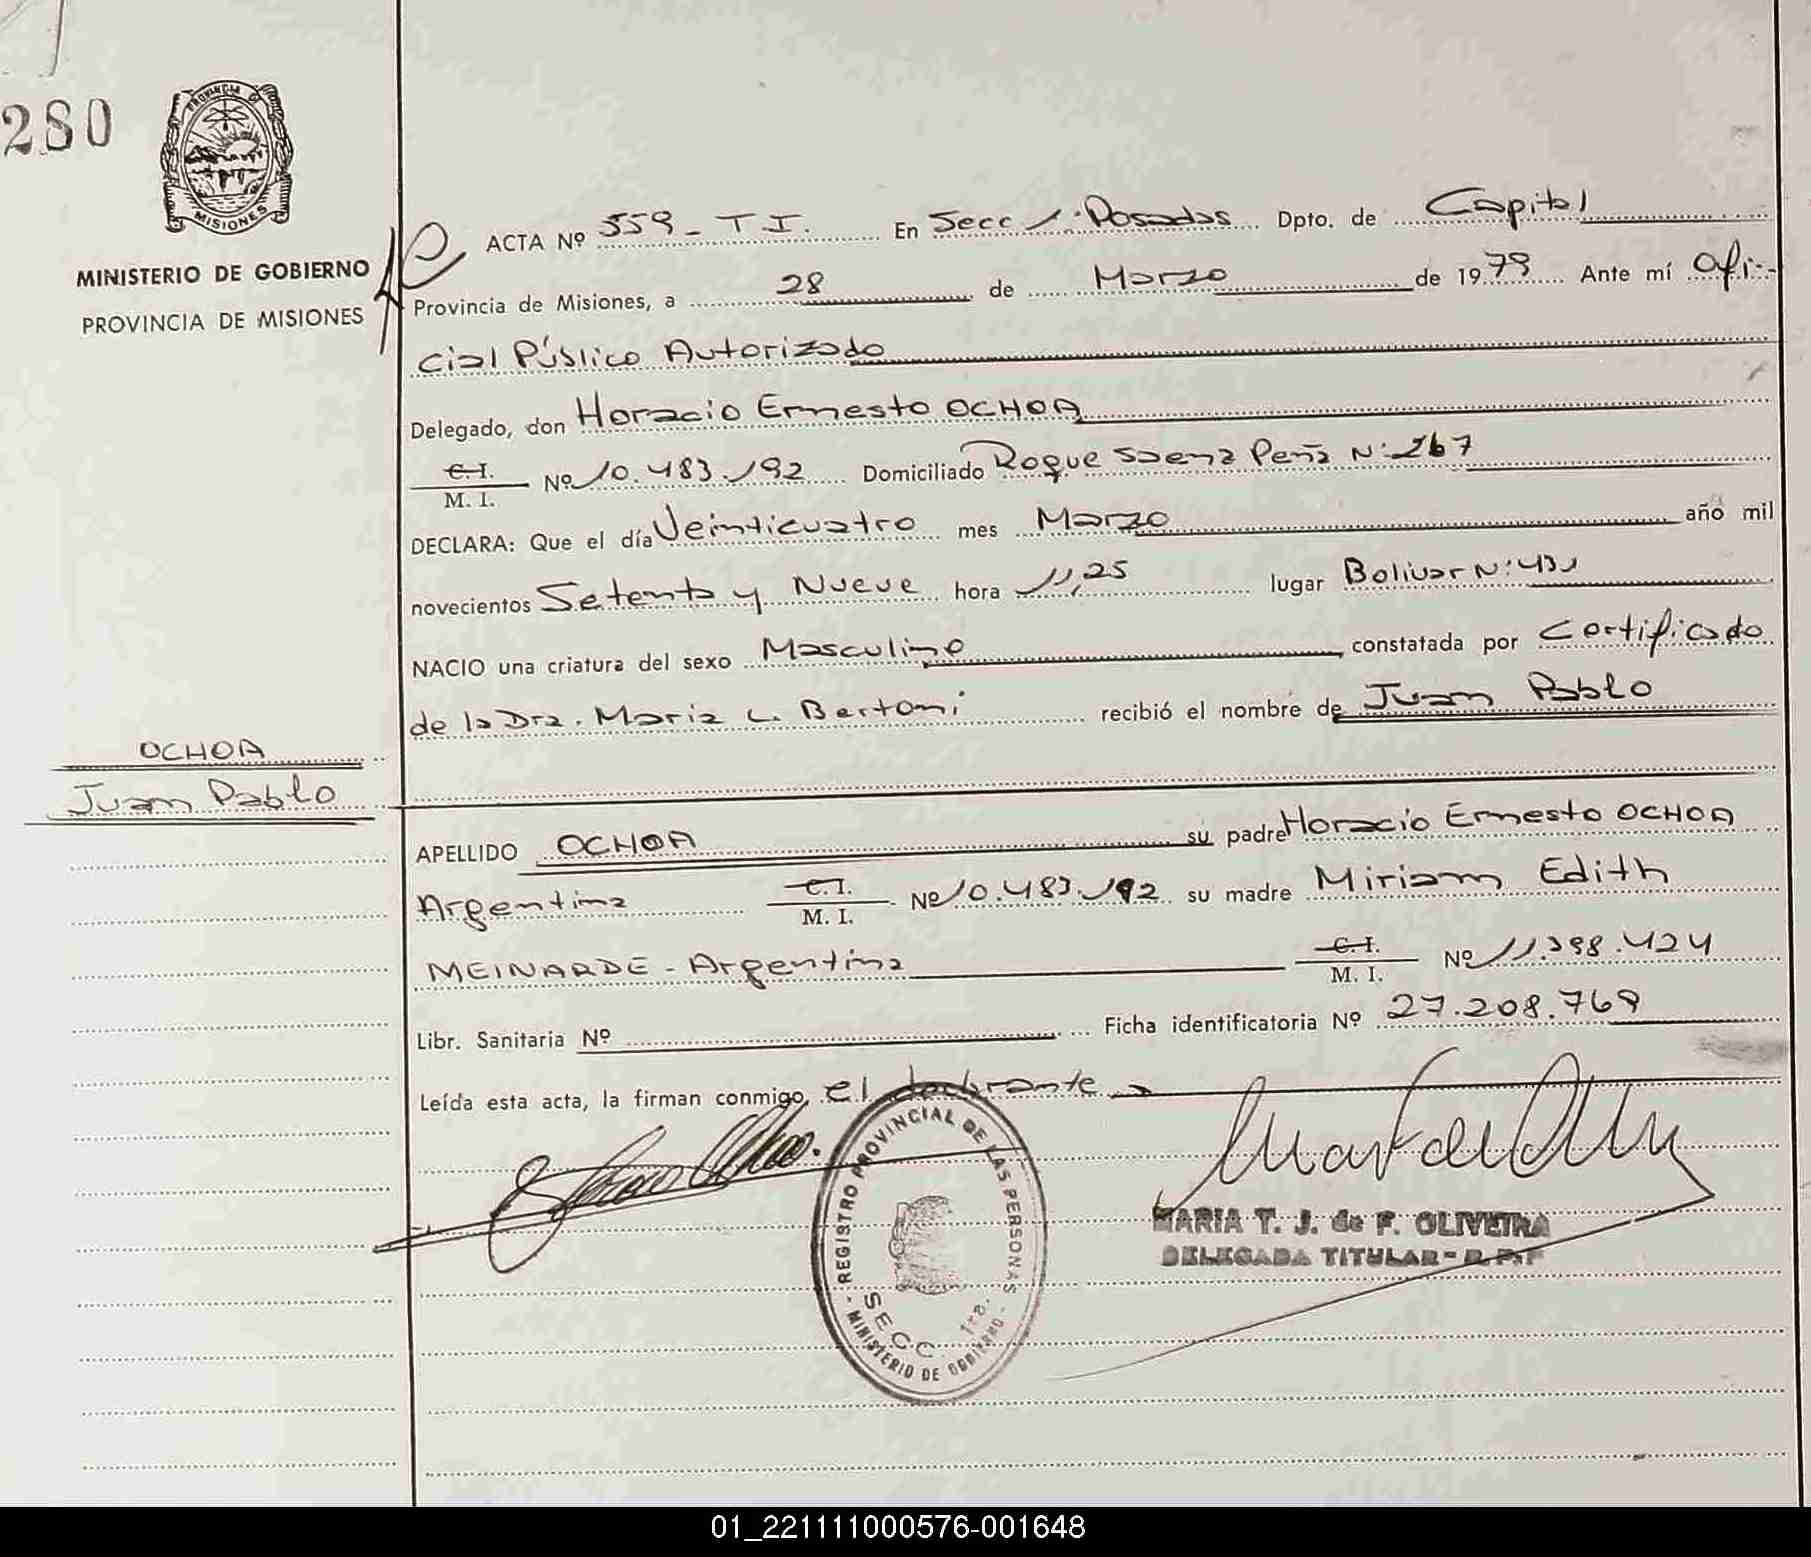 280
PROVINCIA DE
MISIONES
MINISTERIO DE GOBIERNO
PROVINCIA DE MISIONES
ACTA Nº 559 - T I. En Secc 1: Posadas Dpto. de Capital
Provincia de Misiones, a 28 de Marzo de 1979 Ante mí Ofi-
cial Público Autorizado
Delegado, don Horacio Ernesto OCHOA
C. I.
M. I. Nº 10.483.192 Domiciliado Roque Saenz Peña N: 267
DECLARA: Que el día Veinticuatro mes Marzo año mil
novecientos Setenta y Nueve hora 11,25 lugar Bolivar N: 431
NACIO una criatura del sexo Masculino constatada por Certificado
de la Dra. Maria L. Bertoni recibió el nombre de Juan Pablo
OCHOA
Juan Pablo
APELLIDO OCHOA su padre Horacio Ernesto OCHOA
Argentina C. I. M. I. Nº 10.483.192 su madre Miriam Edith
MEINARDE - Argentina C. I. M. I. Nº 11.398.424
Libr. Sanitaria Nº Ficha identificatoria Nº 27.208.769
Leída esta acta, la firman conmigo, el declarante
REGISTRO PROVINCIAL DE LAS PERSONAS
SECC. 1ra.
- MINISTERIO DE GOBIERNO -
MARIA T. J. de F. OLIVEIRA
DELEGADA TITULAR - R.P.P
01_221111000576-001648